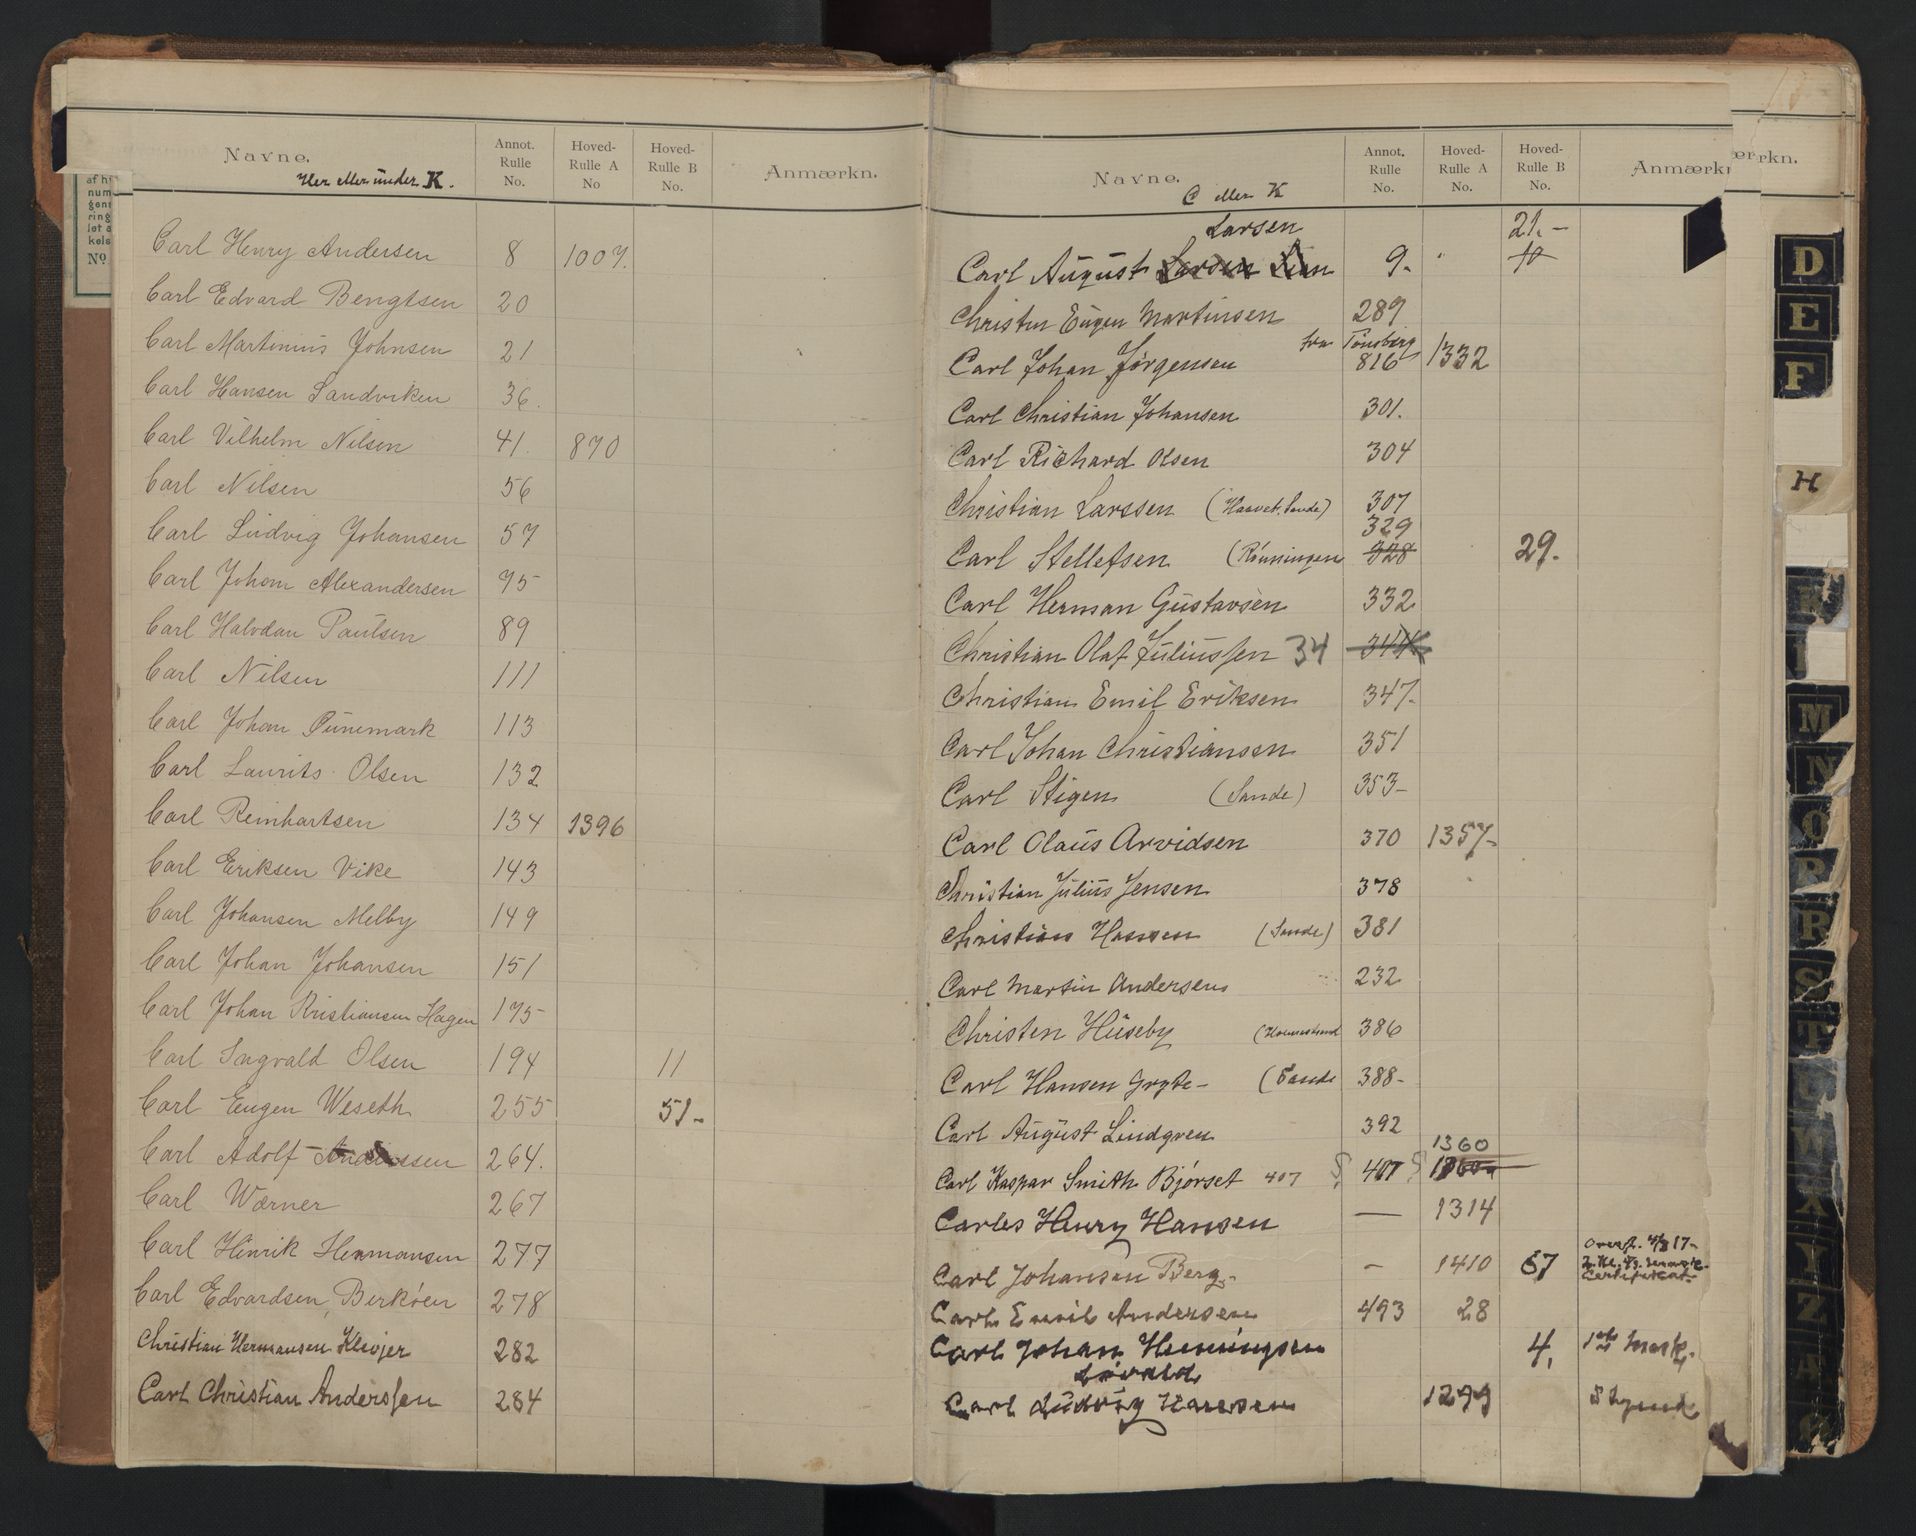 Navne.
Her eller under K.
Annot. Rulle No.
Hoved-Rulle A No
Hoved-Rulle B No.
Anmærkn.
Carl Henry Andersen 8 1007.
Carl Edvard Bengtsen 20
Carl Martinius Johnsen 21
Carl Hansen Sandviken 36.
Carl Vilhelm Nilsen 41. 870
Carl Nilsen 56
Carl Ludvig Johansen 57
Carl Johan Alexandersen 75
Carl Halvdan Paulsen 89
Carl Nilsen 111
Carl Johan Dunemark 113
Carl Laurits Olsen 132
Carl Reinhartsen 134 1396
Carl Eriksen Vike 143
Carl Johansen Melby 149
Carl Johan Johansen 151
Carl Johan Kristiansen Hagen 175
Carl Sagvald Olsen 194 11
Carl Eugen Weseth 255 51-
Carl Adolf Anderssen 264.
Carl Wærner 267
Carl Hinrik Hermansen 277
Carl Edvardsen Berköen 278
Christian Hermansen Klevjer 282
Carl Christian Anderssen 284
Navne.
C eller K
Annot. Rulle No.
Hoved-Rulle A No.
Hoved-Rulle B No.
Anmærkn
ærkn.
Larsen 21.-
Carl August Larsen Lian 9. 10
Christen Eugen Martinsen 289
fra Tönsberg
Carl Johan Jørgensen 816 1332
Carl Christian Johansen 301.
Carl Richard Olsen 304
Christian Larssen (Haavet, Sande) 307
329
Carl Stellefsen (Rönningen 328 29.
Carl Herman Gustavsen 332
Christian Olaf Juliussen 34 344
Christian Emil Eriksen 347.
Carl Johan Christiansen 351
Carl Stigen (Sande) 353-
Carl Olaus Arvidsen 370 1357-
Christian Julius Jensen 378
Christian Hansen (Sande) 381
Carl Martin Andersen 232
Christen Huseby (Holmestrand 386
Carl Hansen Gryte- (Sande 388-
Carl August Lindgren 392
1360
Carl Kaspar Smith Bjørset 407 407
Carles Henry Hansen — 1314
Carl Johansen Berg. - 1410 67
Certifikat.
Carl Emil Andersen 493 28
Carl Johan Henningsen 4. 1ste Mask.
Carl Ludvig Hansen 1299
D
E
F
H
K
M
N
O
P
R
S
T
W
X
Y
Z